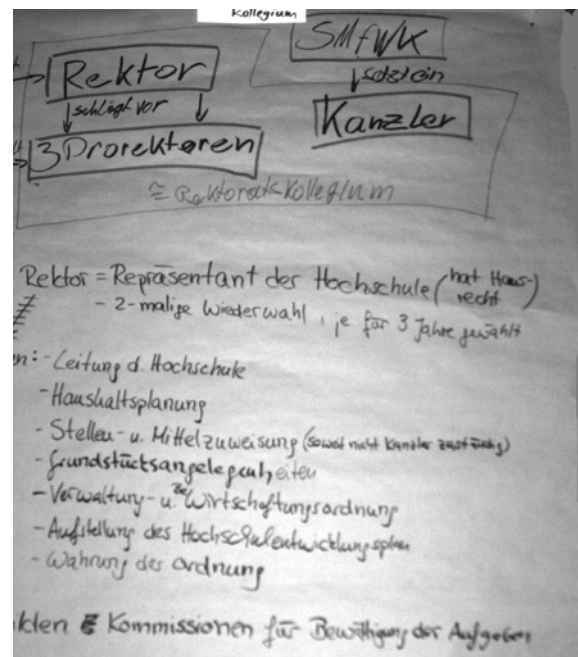 Kollegium
SMfWK
Rektor
setzt ein
schlägt vor
Kanzler
3 Prorektoren
≙ Rektoratskollegium
Rektor = Repräsentant der Hochschule (hat Haus-
recht)
- 2-malige Wiederwahl, je für 3 Jahre gewählt
n: - Leitung d. Hochschule
- Haushaltsplanung
- Stellen- u. Mittelzuweisung (soweit nicht Kanzler zuständig)
- Grundstücksangelegenheiten
- Verwaltung- u. Bewirtschaftungsordnung
- Aufstellung des Hochschulentwicklungsplan
- Wahrung der Ordnung
Kommissionen für Bewältigung der Aufgaben